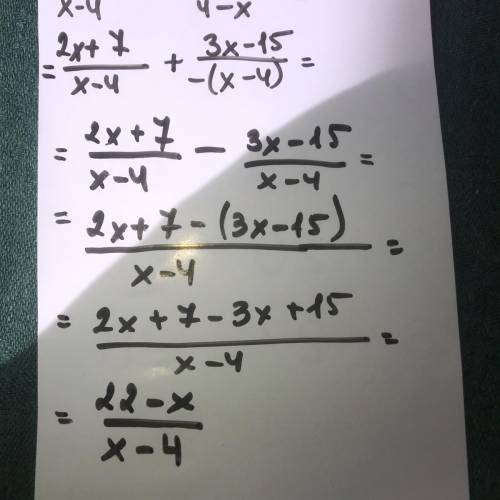 x-4 4-x
= 2x+7/x-4 + 3x-15/-(x-4) =
= 2x+7/x-4 - 3x-15/x-4 =
= 2x+7-(3x-15)/x-4 =
= 2x+7-3x+15/x-4 =
= 22-x/x-4